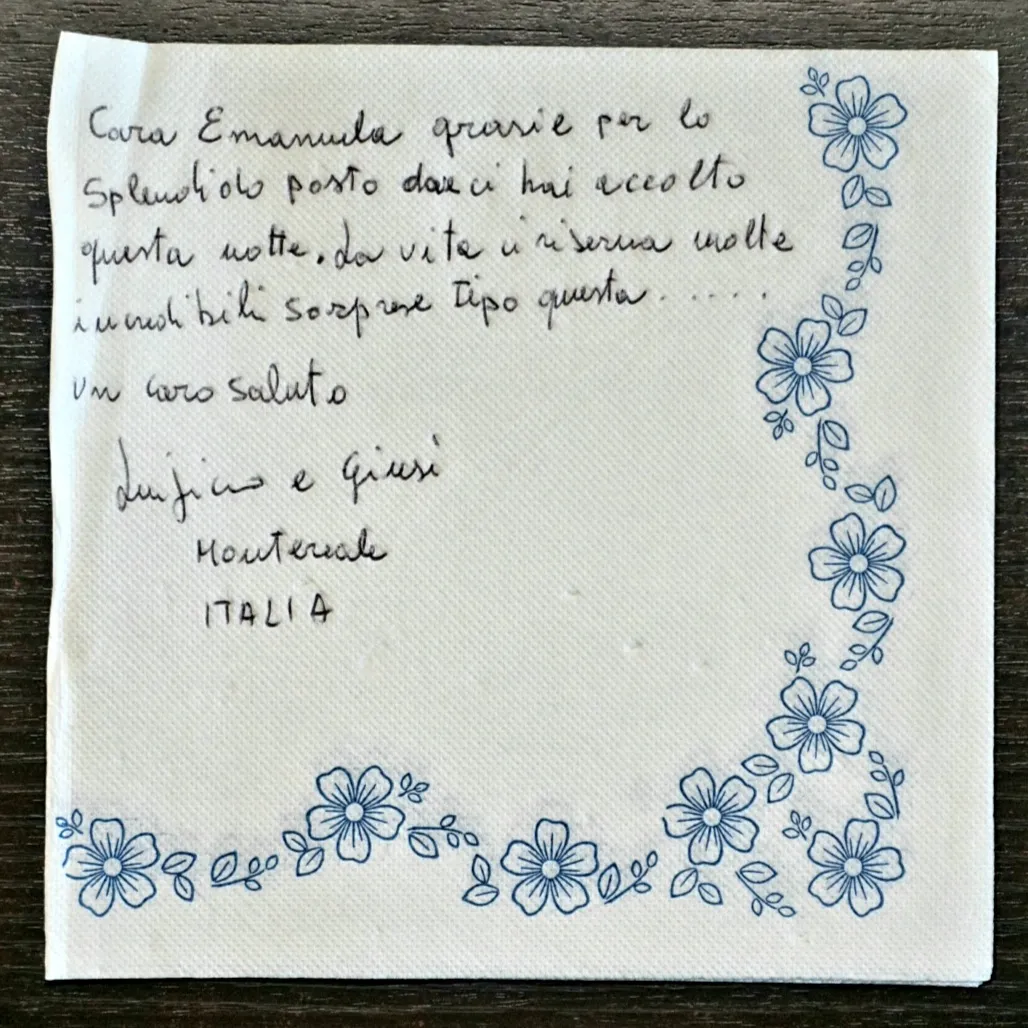 Cara Emanuela grazie per lo
splendido posto dove ci hai accolto
questa notte. La vita ci riserva molte
incredibili sorprese tipo questa......
un caro saluto
e Giusi
Montereale
ITALIA